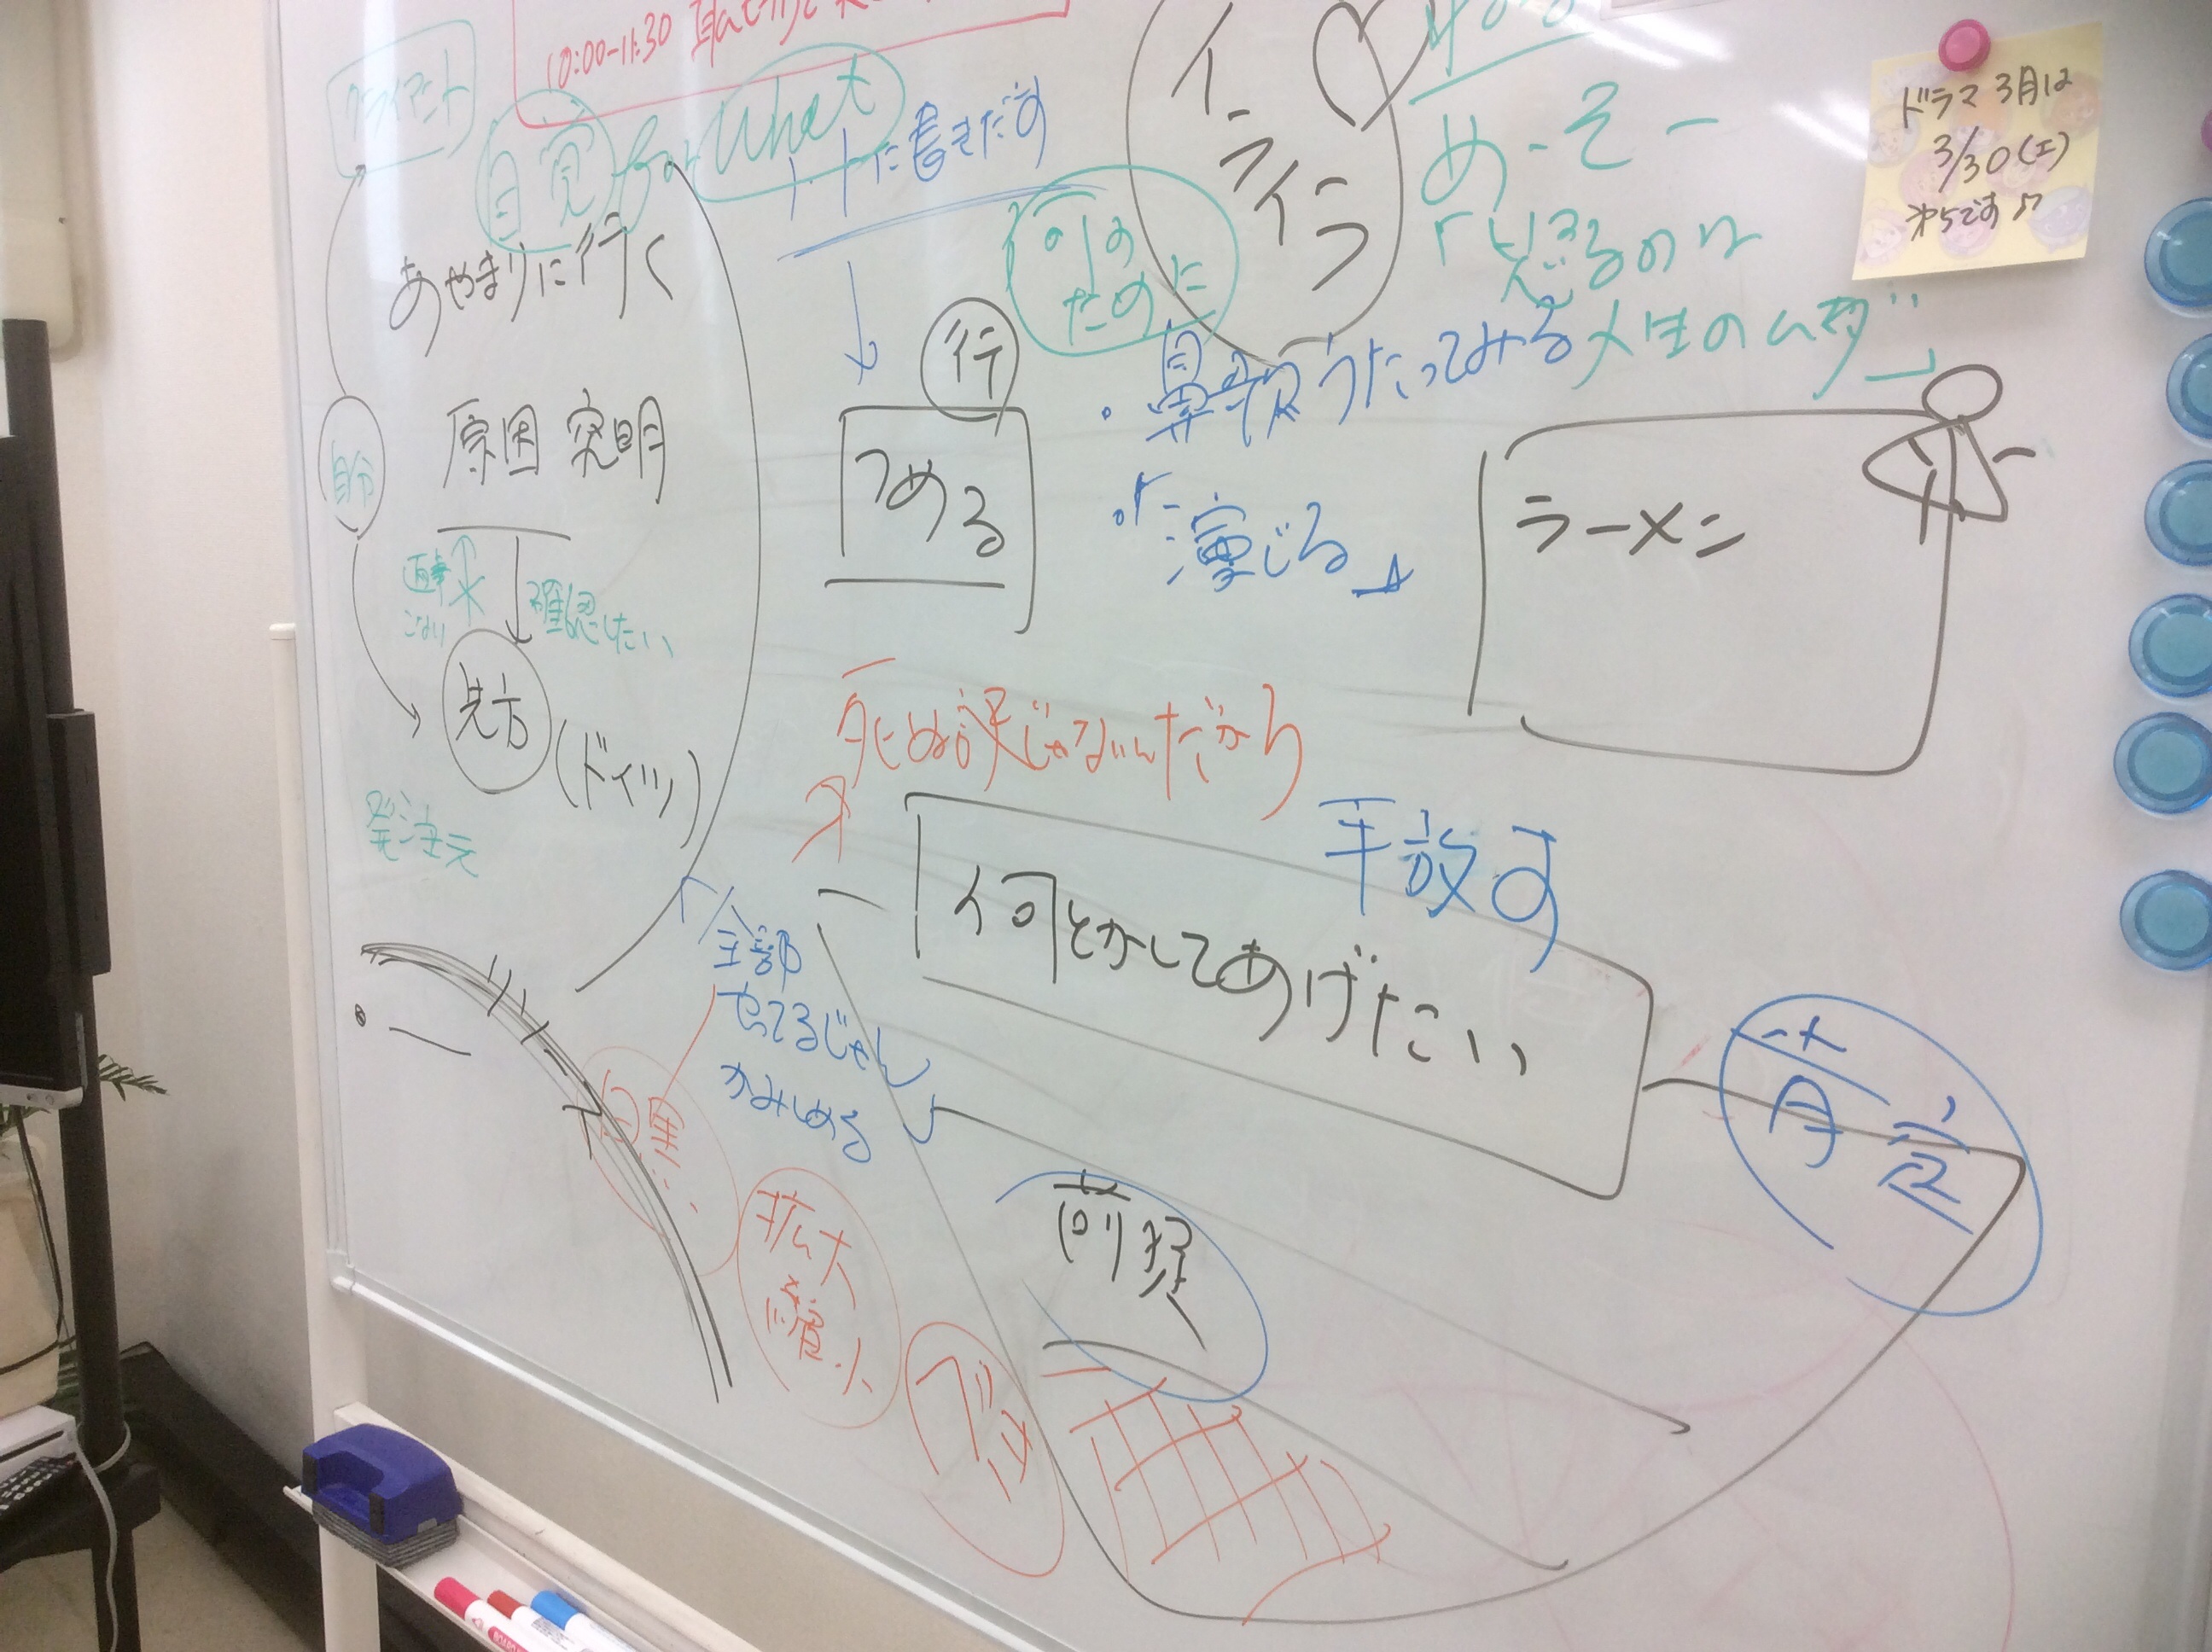 10:00-11:30
クライアント
自覚 for what
に書きだす
イライラ
めーそー
「怒るのは
人生のムダ」
ドラマ 3月は
3/30(土)
からです♪
何の
ために
あやまりに行く
行
・鼻歌うたってみる
原因 究明
自分
つめる
・「演じる」
ラーメン
返事
こない
確認したい
先方
(ドイツ)
発注元
死ぬ訳じゃないんだから
手放す
何とかしてあげたい
全部
やってるじゃん
かみしめる
前提
拡大